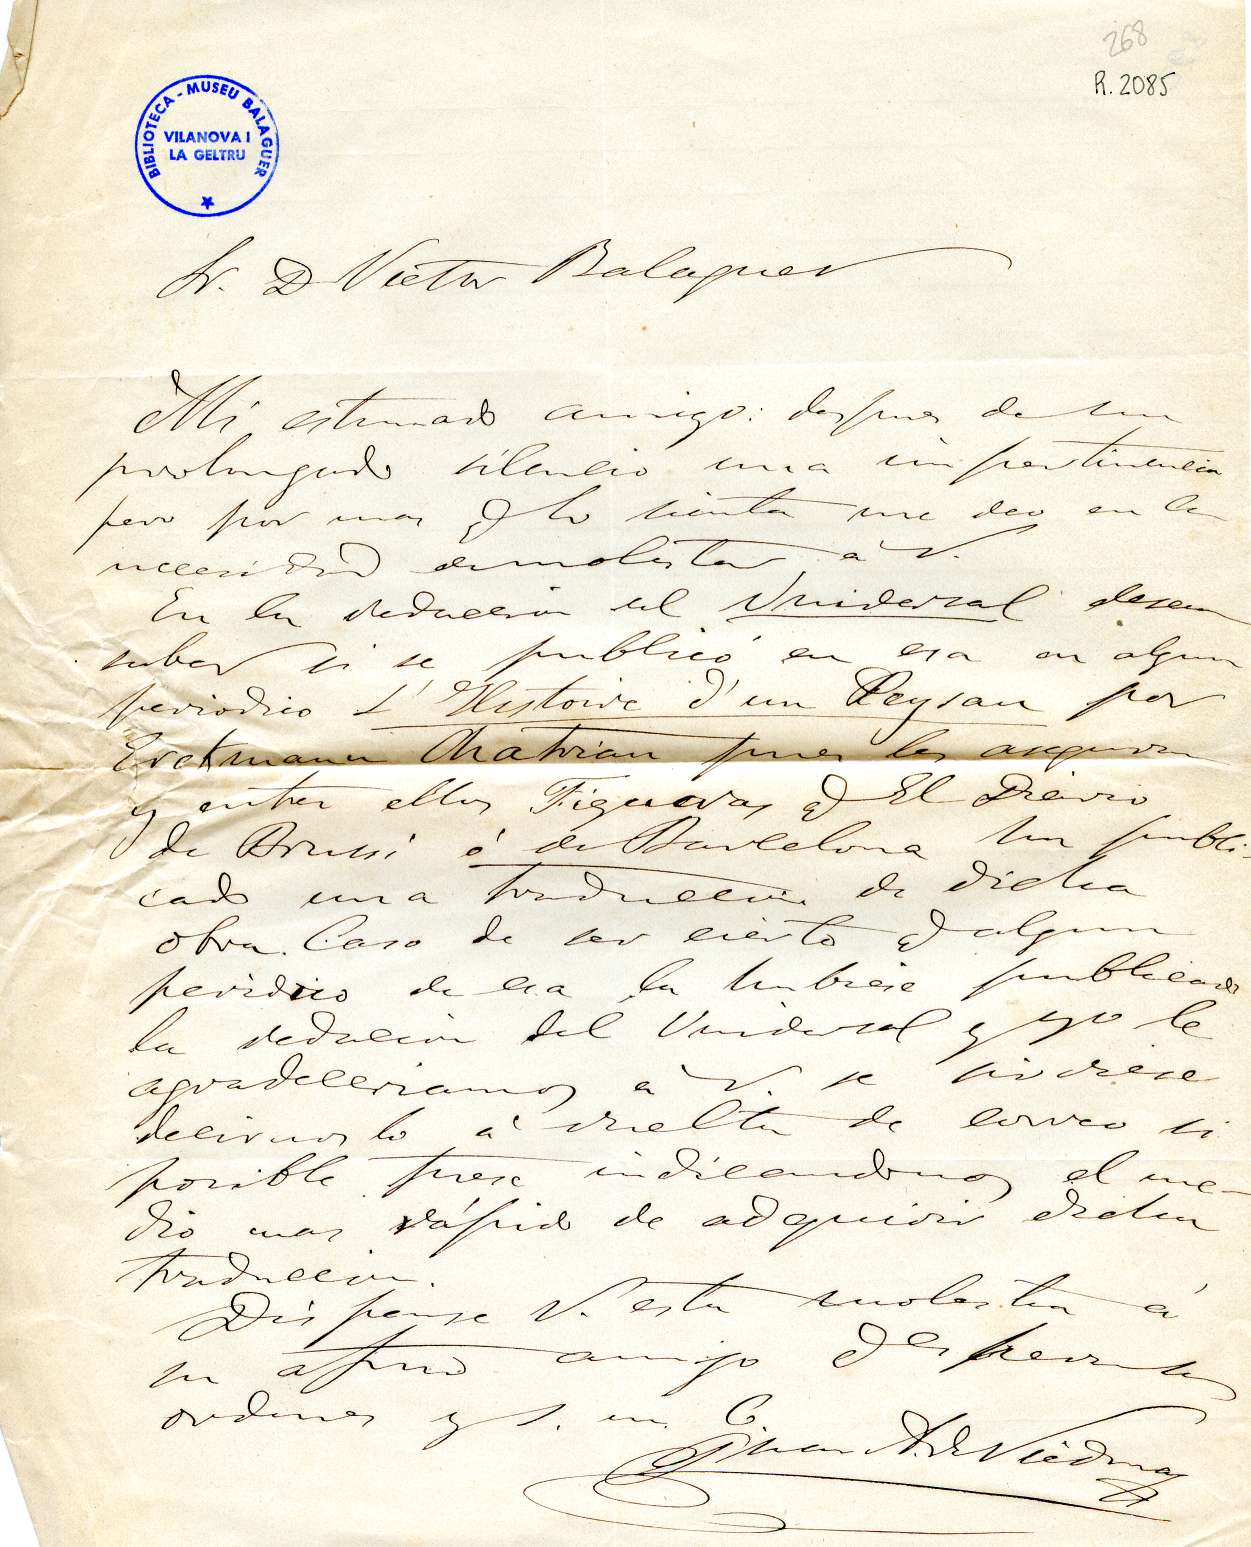 268
R. 2085
BIBLIOTECA - MUSEU BALAGUER
VILANOVA I
LA GELTRU
Sr. D Victor Balaguer
Mi estimado amigo: despues de un
prolongado silencio una impertinencia
pero por mas q lo sienta me veo en la
necesidad de molestar á V.
En la redaccion del Universal desean
saber si se publicó en esa en algun
periodico L'Histoire d'un Peysan por
Erckmann Chatrian pues les aseguran
y entre ellos Figueras q El Diario
de Brussi ó de Barcelona ha publi-
cado una traduccion de dicha
obra. Caso de ser cierto q algun
periodico de esa la hubiese publicado
la redaccion del Universal y yo le
agradeceriamos á V. se sirviese
decirnoslo á vuelta de correo si
posible fuese indicandonos el me-
dio mas rápido de adquirir dicha
traduccion.
Dispense V. esta molestia á
su afmo amigo q espera sus
ordenes y s. m. C.
Juan A. de Viedma